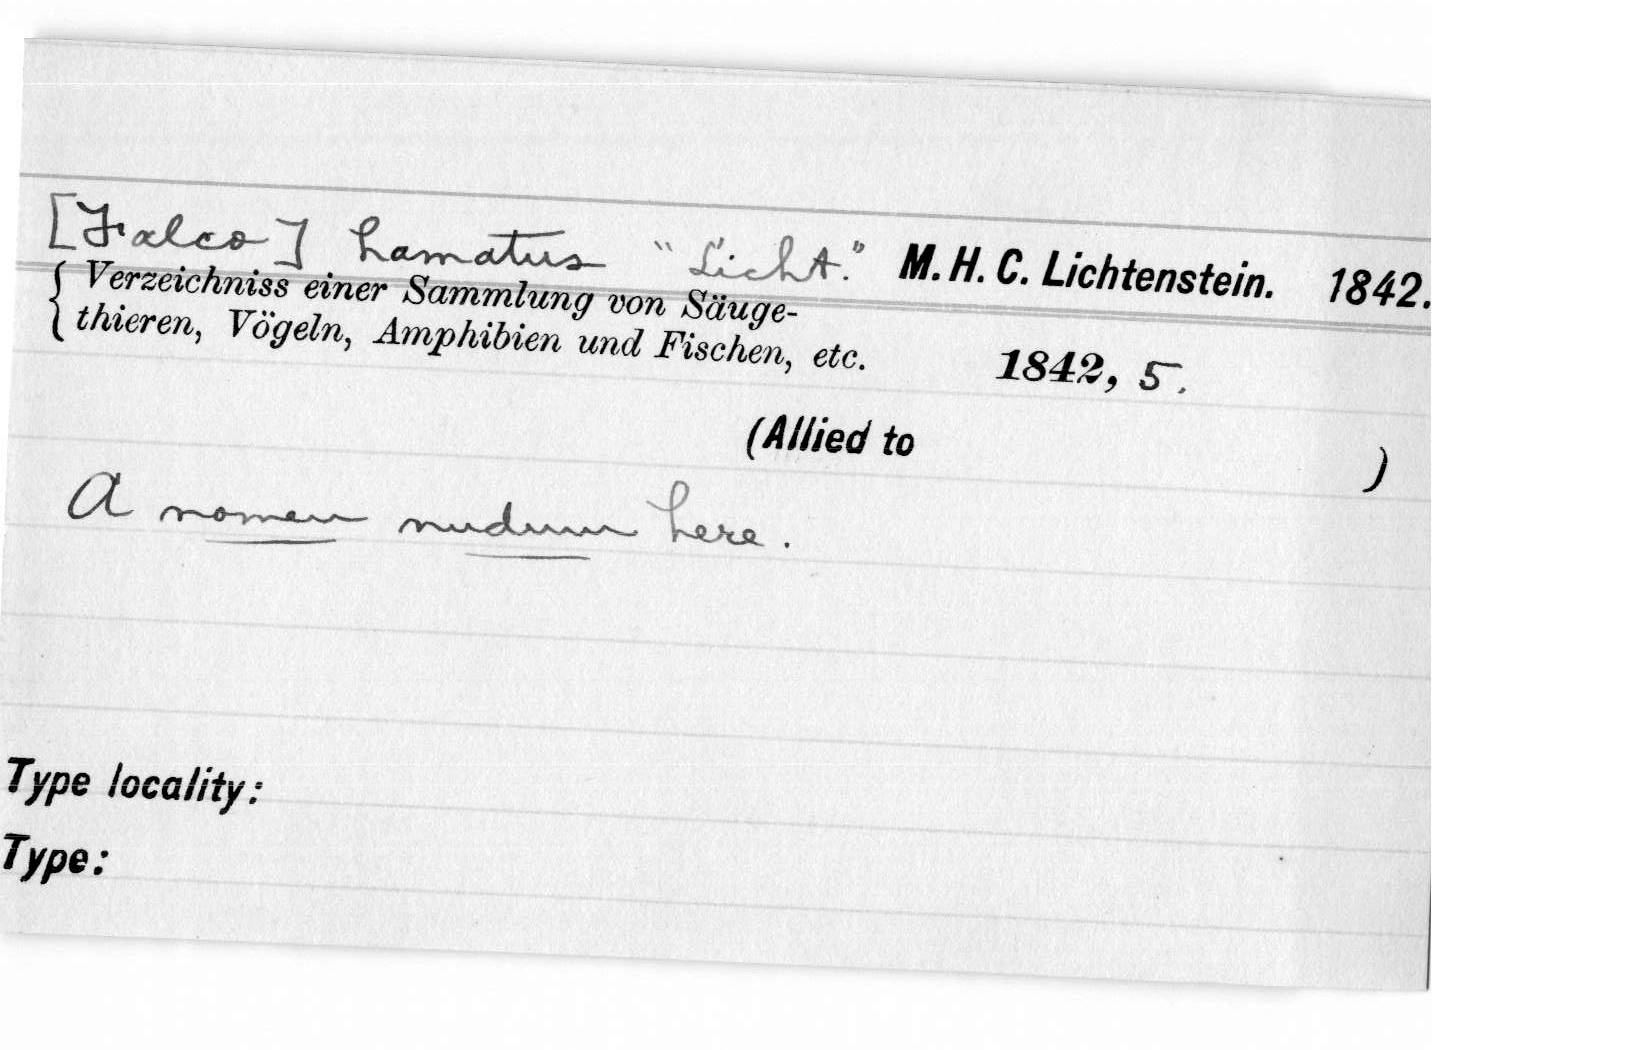 [Falco] hamatus "Licht." M. H. C. Lichtenstein. 1842.
Verzeichniss einer Sammlung von Säuge-
thieren, Vögeln, Amphibien und Fischen, etc. 1842, 5.
(Allied to )
A nomen nudum here.
Type locality:
Type: